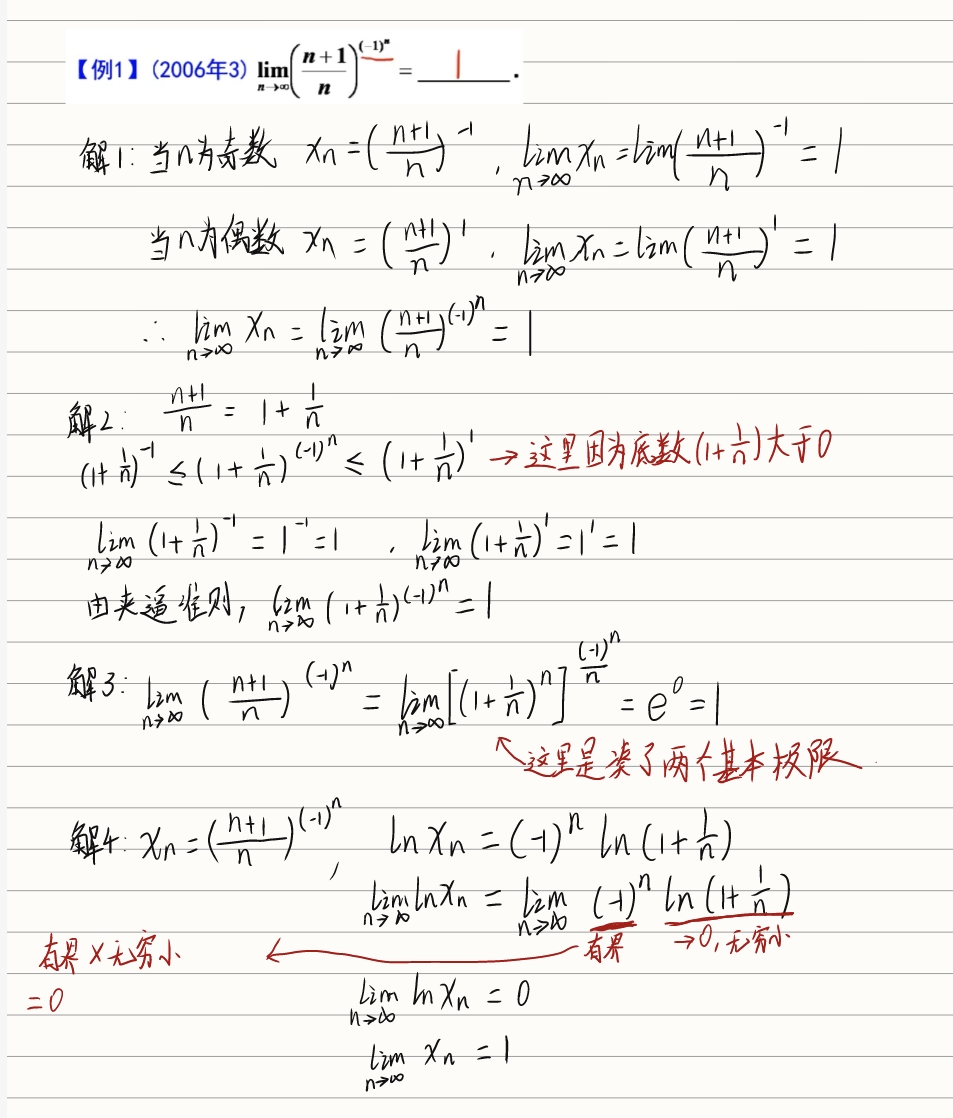 【例1】(2006年3) lim_{n→∞}((n+1)/n)^{(-1)^n} = 1 .
解1: 当n为奇数 Xn = ((n+1)/n)^{-1} , lim_{n→∞} Xn = lim((n+1)/n)^{-1} = 1
当n为偶数 Xn = ((n+1)/n)^1 , lim_{n→∞} Xn = lim((n+1)/n)^1 = 1
∴ lim_{n→∞} Xn = lim_{n→∞} ((n+1)/n)^{(-1)^n} = 1
解2: (n+1)/n = 1 + 1/n
(1+1/n)^{-1} ≤ (1+1/n)^{(-1)^n} ≤ (1+1/n)^1 → 这里因为底数(1+1/n)大于0
lim_{n→∞} (1+1/n)^{-1} = 1^{-1} = 1 , lim_{n→∞} (1+1/n)^1 = 1^1 = 1
由夹逼准则, lim_{n→∞} (1+1/n)^{(-1)^n} = 1
解3: lim_{n→∞} ((n+1)/n)^{(-1)^n} = lim_{n→∞} [(1+1/n)^n]^{(-1)^n/n} = e^0 = 1
↖这里是凑了两个基本极限
解4: Xn = ((n+1)/n)^{(-1)^n} , ln Xn = (-1)^n ln(1+1/n)
lim_{n→∞} ln Xn = lim_{n→∞} (-1)^n ln(1+1/n)
有界×无穷小 ← 有界 →0,无穷小
=0
lim_{n→∞} ln Xn = 0
lim_{n→∞} Xn = 1